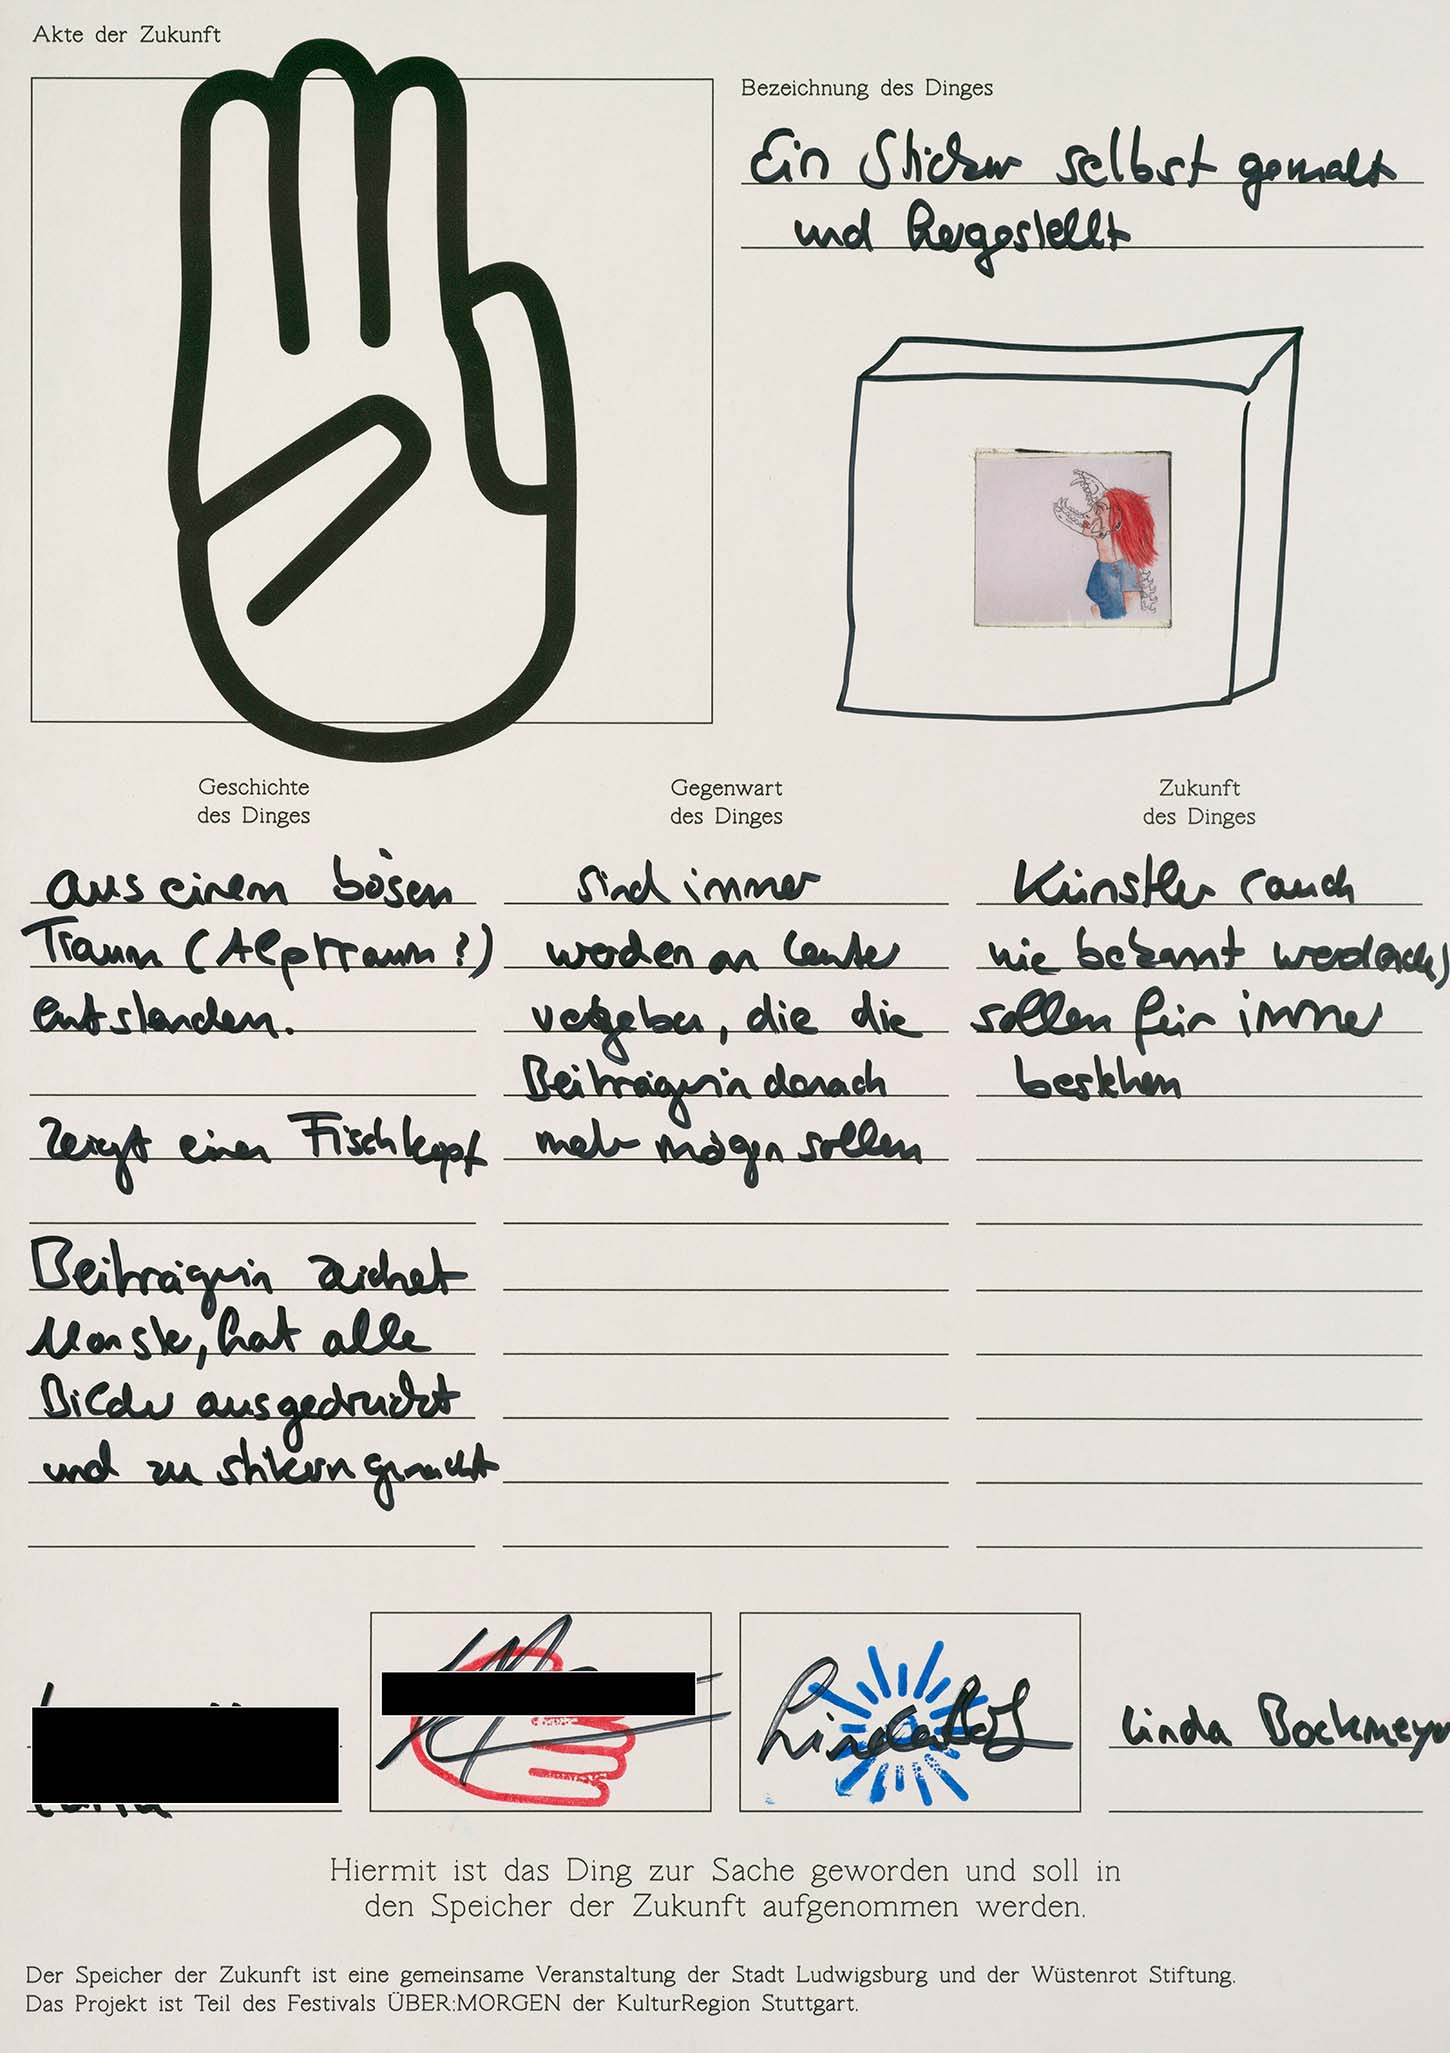 Akte der Zukunft
Bezeichnung des Dinges
Ein Sticker selbst gemalt
und hergestellt
Geschichte
des Dinges
aus einem bösen
Traum (Alptraum?)
entstanden.
zeigt einen Fischkopf
Beiträgerin zeichnet
Monster, hat alle
Bilder ausgedruckt
und zu stikern gemacht
Gegenwart
des Dinges
sind immer
werden an Leute
vergeben, die die
Beiträgerin danach
mehr mögen sollen
Zukunft
des Dinges
Künstler (auch
nie bekannt werdende)
sollen für immer
bestehen
Linda Bockmeyer
Hiermit ist das Ding zur Sache geworden und soll in
den Speicher der Zukunft aufgenommen werden.
Der Speicher der Zukunft ist eine gemeinsame Veranstaltung der Stadt Ludwigsburg und der Wüstenrot Stiftung.
Das Projekt ist Teil des Festivals ÜBER:MORGEN der KulturRegion Stuttgart.